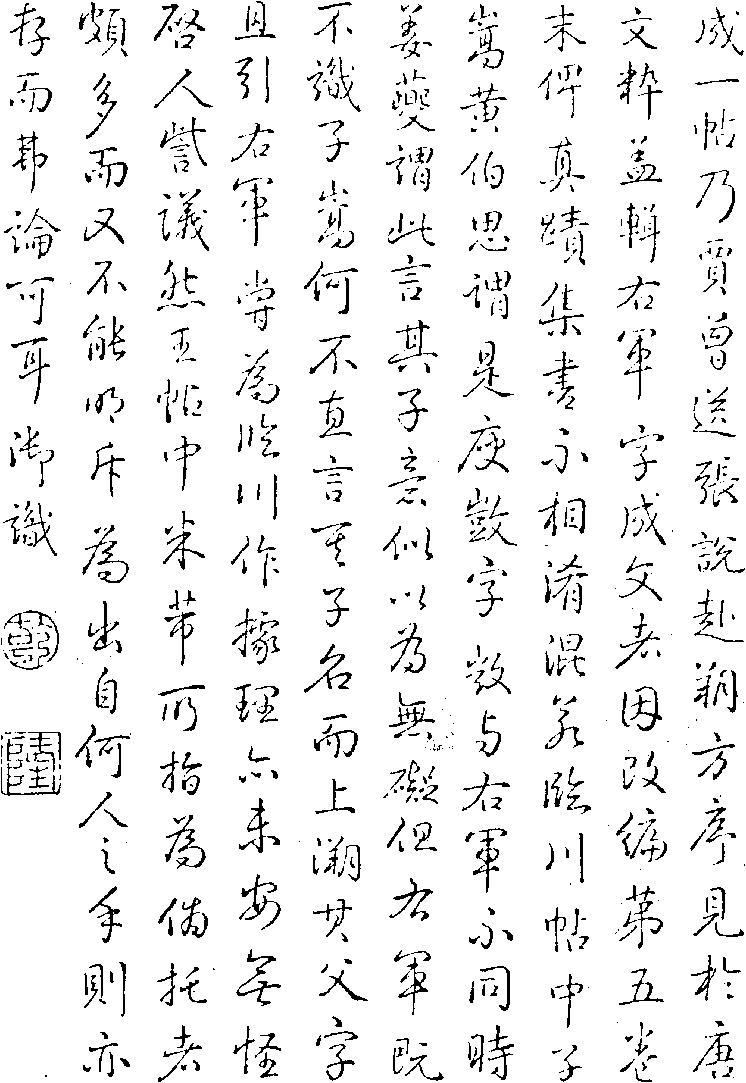 成一帖乃賈曾送張說赴朔方序見於唐
文粹蓋輯右軍字成文者因改編第五卷
末俾真蹟集書不相淆混若臨川帖中子
嵩黃伯思謂是庾敳字敳与右軍不同時
姜夔謂此言其子意似以為無礙但右軍既
不識子嵩何不直言其子名而上溯其父字
且引右軍嘗為臨川作據理亦未安無怪
啓人訾議然王帖中米芾所指為偽托者
頗多而又不能明斥為出自何人之手則亦
存而弗論可耳御識
乾
隆